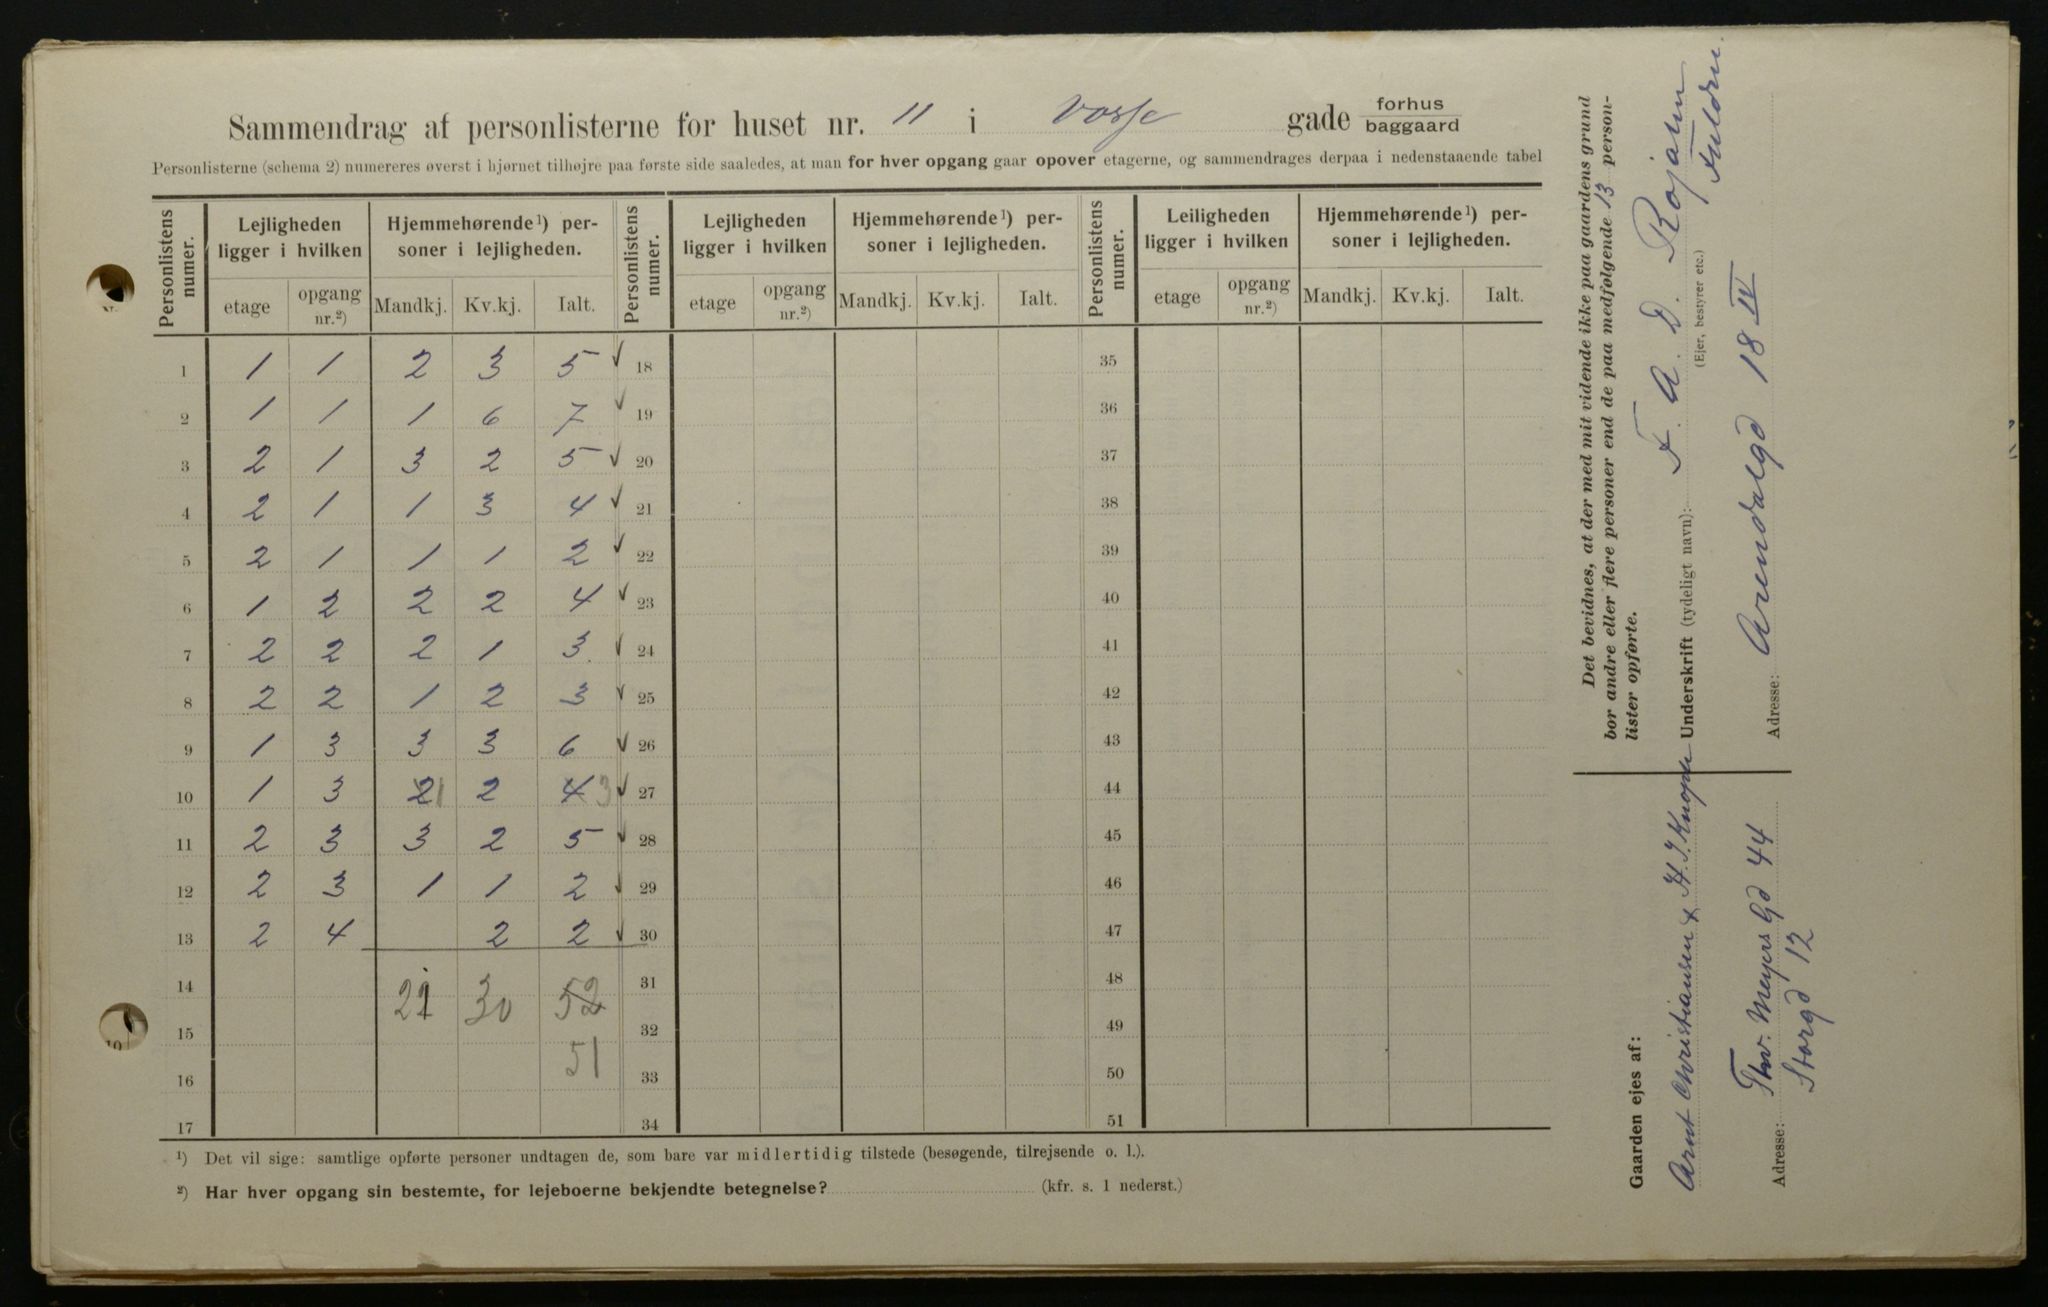 Sammendrag af personlisterne for huset nr. 11 i Vosse gade forhus baggaard
Personlisterne (schema 2) numereres øverst i hjørnet tilhøjre paa første side saaledes, at man for hver opgang gaar opover etagerne, og sammendrages derpaa i nedenstaaende tabel
Personlistens numer. Lejligheden ligger i hvilken Hjemmehørende ¹) personer i lejligheden. Personlistens numer. Lejligheden ligger i hvilken Hjemmehørende ¹) personer i lejligheden. Personlistens numer. Leiligheden ligger i hvilken Hjemmehørende ¹) personer i lejligheden.
etage opgang nr.²) Mandkj. Kv.kj. Ialt. etage opgang nr.²) Mandkj. Kv.kj. Ialt. etage opgang nr.²) Mandkj. Kv.kj. Ialt.
1 1 1 2 3 5 ✓ 18 35
2 1 1 1 6 7 ✓ 19 36
3 2 1 3 2 5 ✓ 20 37
4 2 1 1 3 4 ✓ 21 38
5 2 1 1 1 2 ✓ 22 39
6 1 2 2 2 4 ✓ 23 40
7 2 2 2 1 3 ✓ 24 41
8 2 2 1 2 3 ✓ 25 42
9 1 3 3 3 6 ✓ 26 43
10 1 3 2 1 2 4 3 ✓ 27 44
11 2 3 3 2 5 ✓ 28 45
12 2 3 1 1 2 ✓ 29 46
13 2 4 2 2 ✓ 30 47
14 21 30 52 31 48
15 32 49
16 51 33 50
17 34 51
¹) Det vil sige: samtlige opførte personer undtagen de, som bare var midlertidig tilstede (besøgende, tilrejsende o. l.).
²) Har hver opgang sin bestemte, for lejeboerne bekjendte betegnelse? (kfr. s. 1 nederst.)
Det bevidnes, at der med mit vidende ikke paa gaardens grund
bor andre eller flere personer end de paa medfølgende 13 person-
lister opførte.
Underskrift (tydeligt navn): F. A. D. Rojahn
(Ejer, bestyrer etc.)
Adresse: Arendalgd 18 IV
Gaarden ejes af:
Arnt Christiansen & H. J. Knopde
Adresse: Thv. Meyers Gd 44
Storgd 12